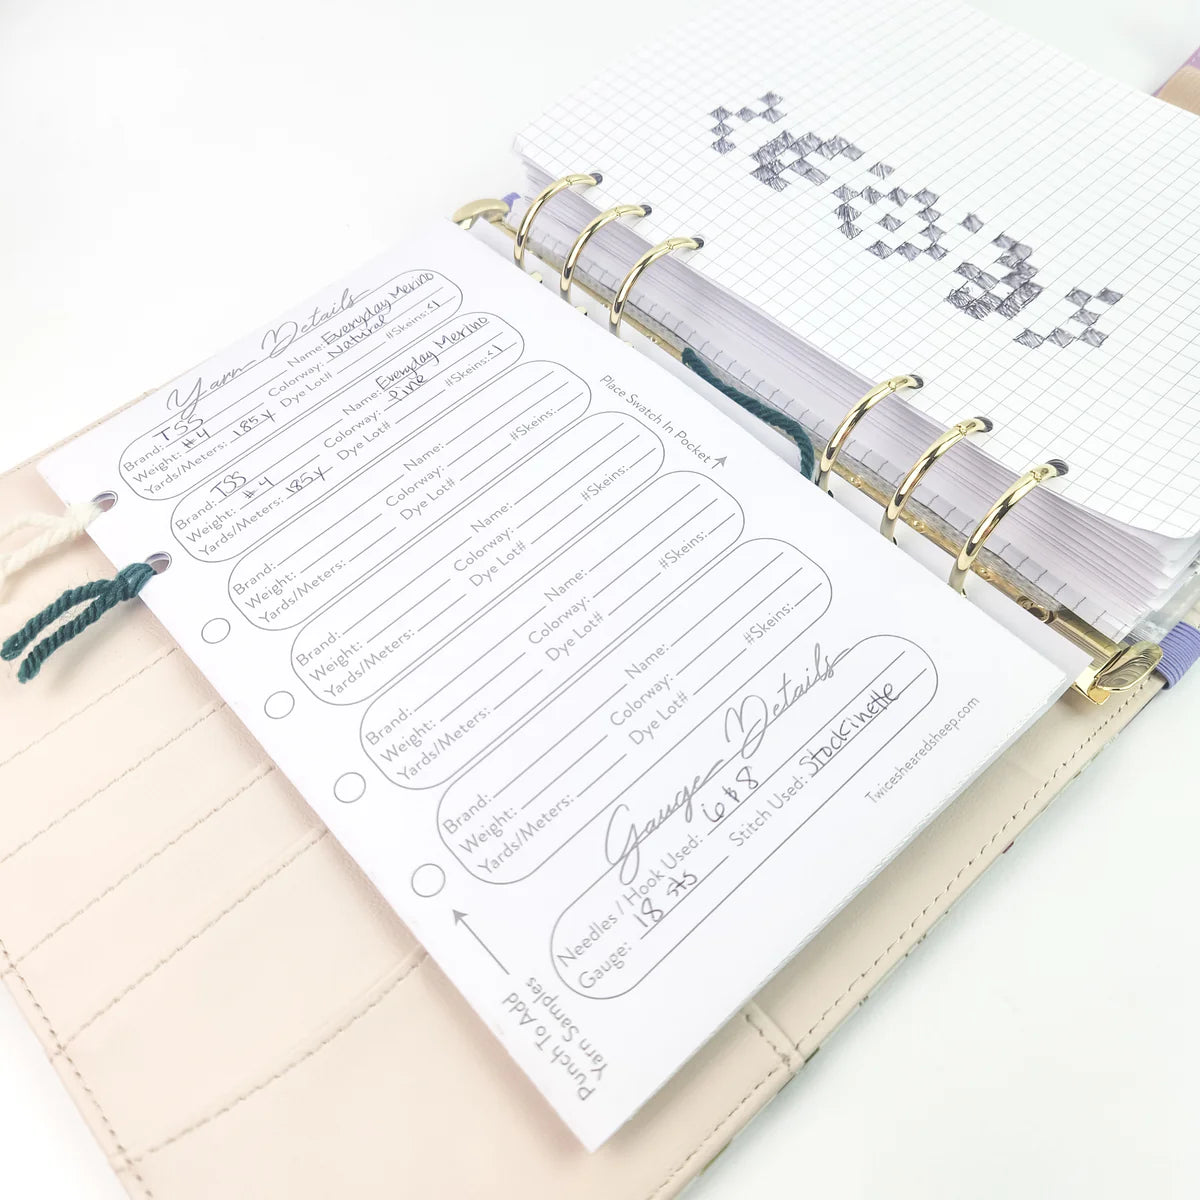 Yarn Details
Brand: TSS Name: Everyday Merino
Weight: #4 Colorway: Natural
Yards/Meters: 185y Dye Lot# #Skeins: <1
Brand: TSS Name: Everyday Merino
Weight: #4 Colorway: Pine
Yards/Meters: 185y Dye Lot# #Skeins: <1
Brand: Name:
Weight: Colorway:
Yards/Meters: Dye Lot# #Skeins:
Brand: Name:
Weight: Colorway:
Yards/Meters: Dye Lot# #Skeins:
Brand: Name:
Weight: Colorway:
Yards/Meters: Dye Lot# #Skeins:
Brand: Name:
Weight: Colorway:
Yards/Meters: Dye Lot# #Skeins:
Gauge Details
Needles / Hook Used: 6 & 8
Gauge: 18 sts Stitch Used: Stockinette
Place Swatch In Pocket
Punch To Add
Yarn Samples
Twiceshearedsheep.com